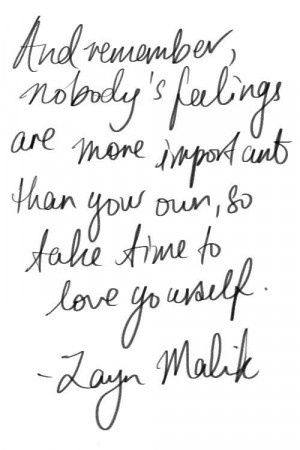 And remember,
nobody's feelings
are more important
than your own, so
take time to
love yourself.
- Zayn Malik